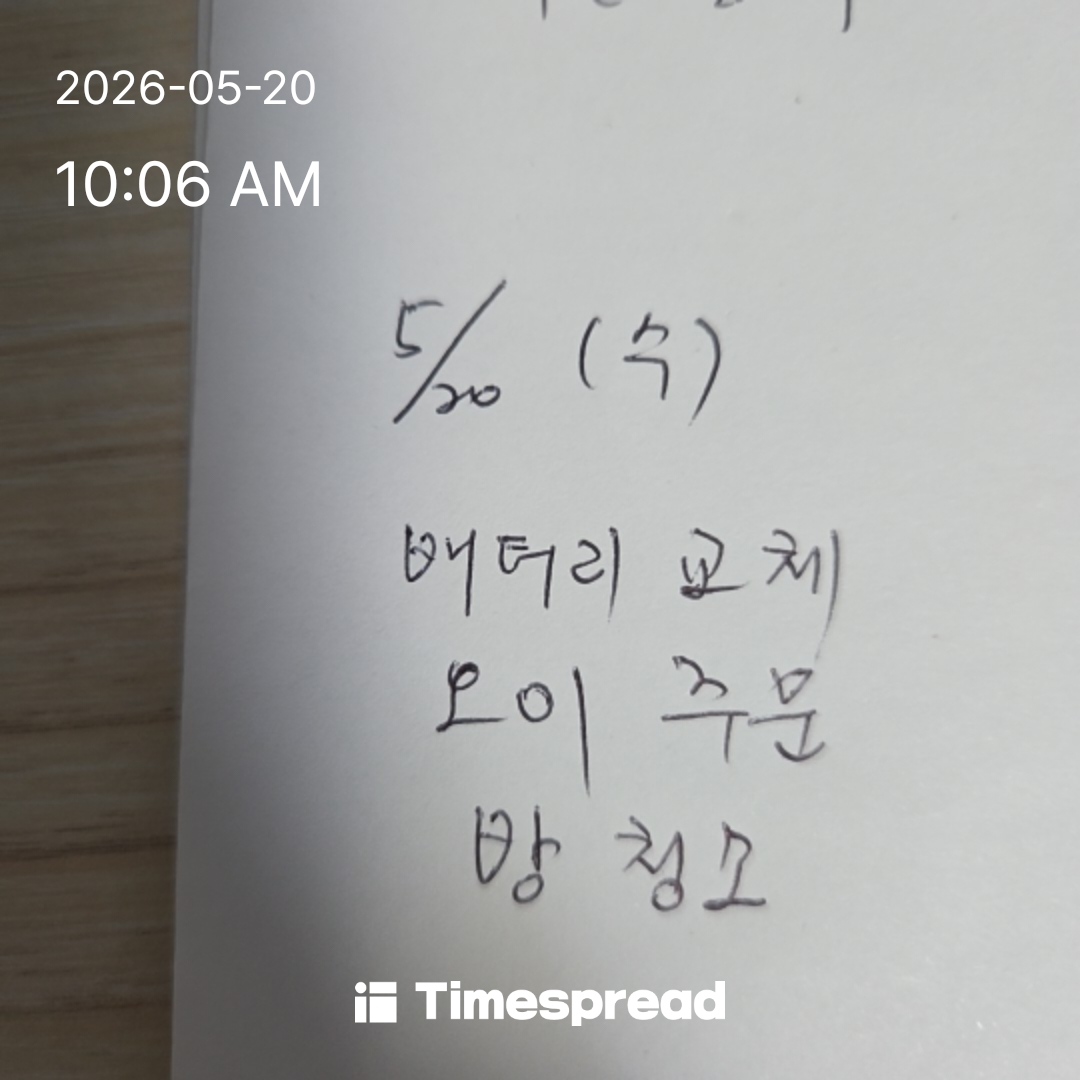 2026-05-20
10:06 AM
5/20 (수)
배터리 교체
오이 주문
방 청소
Timespread